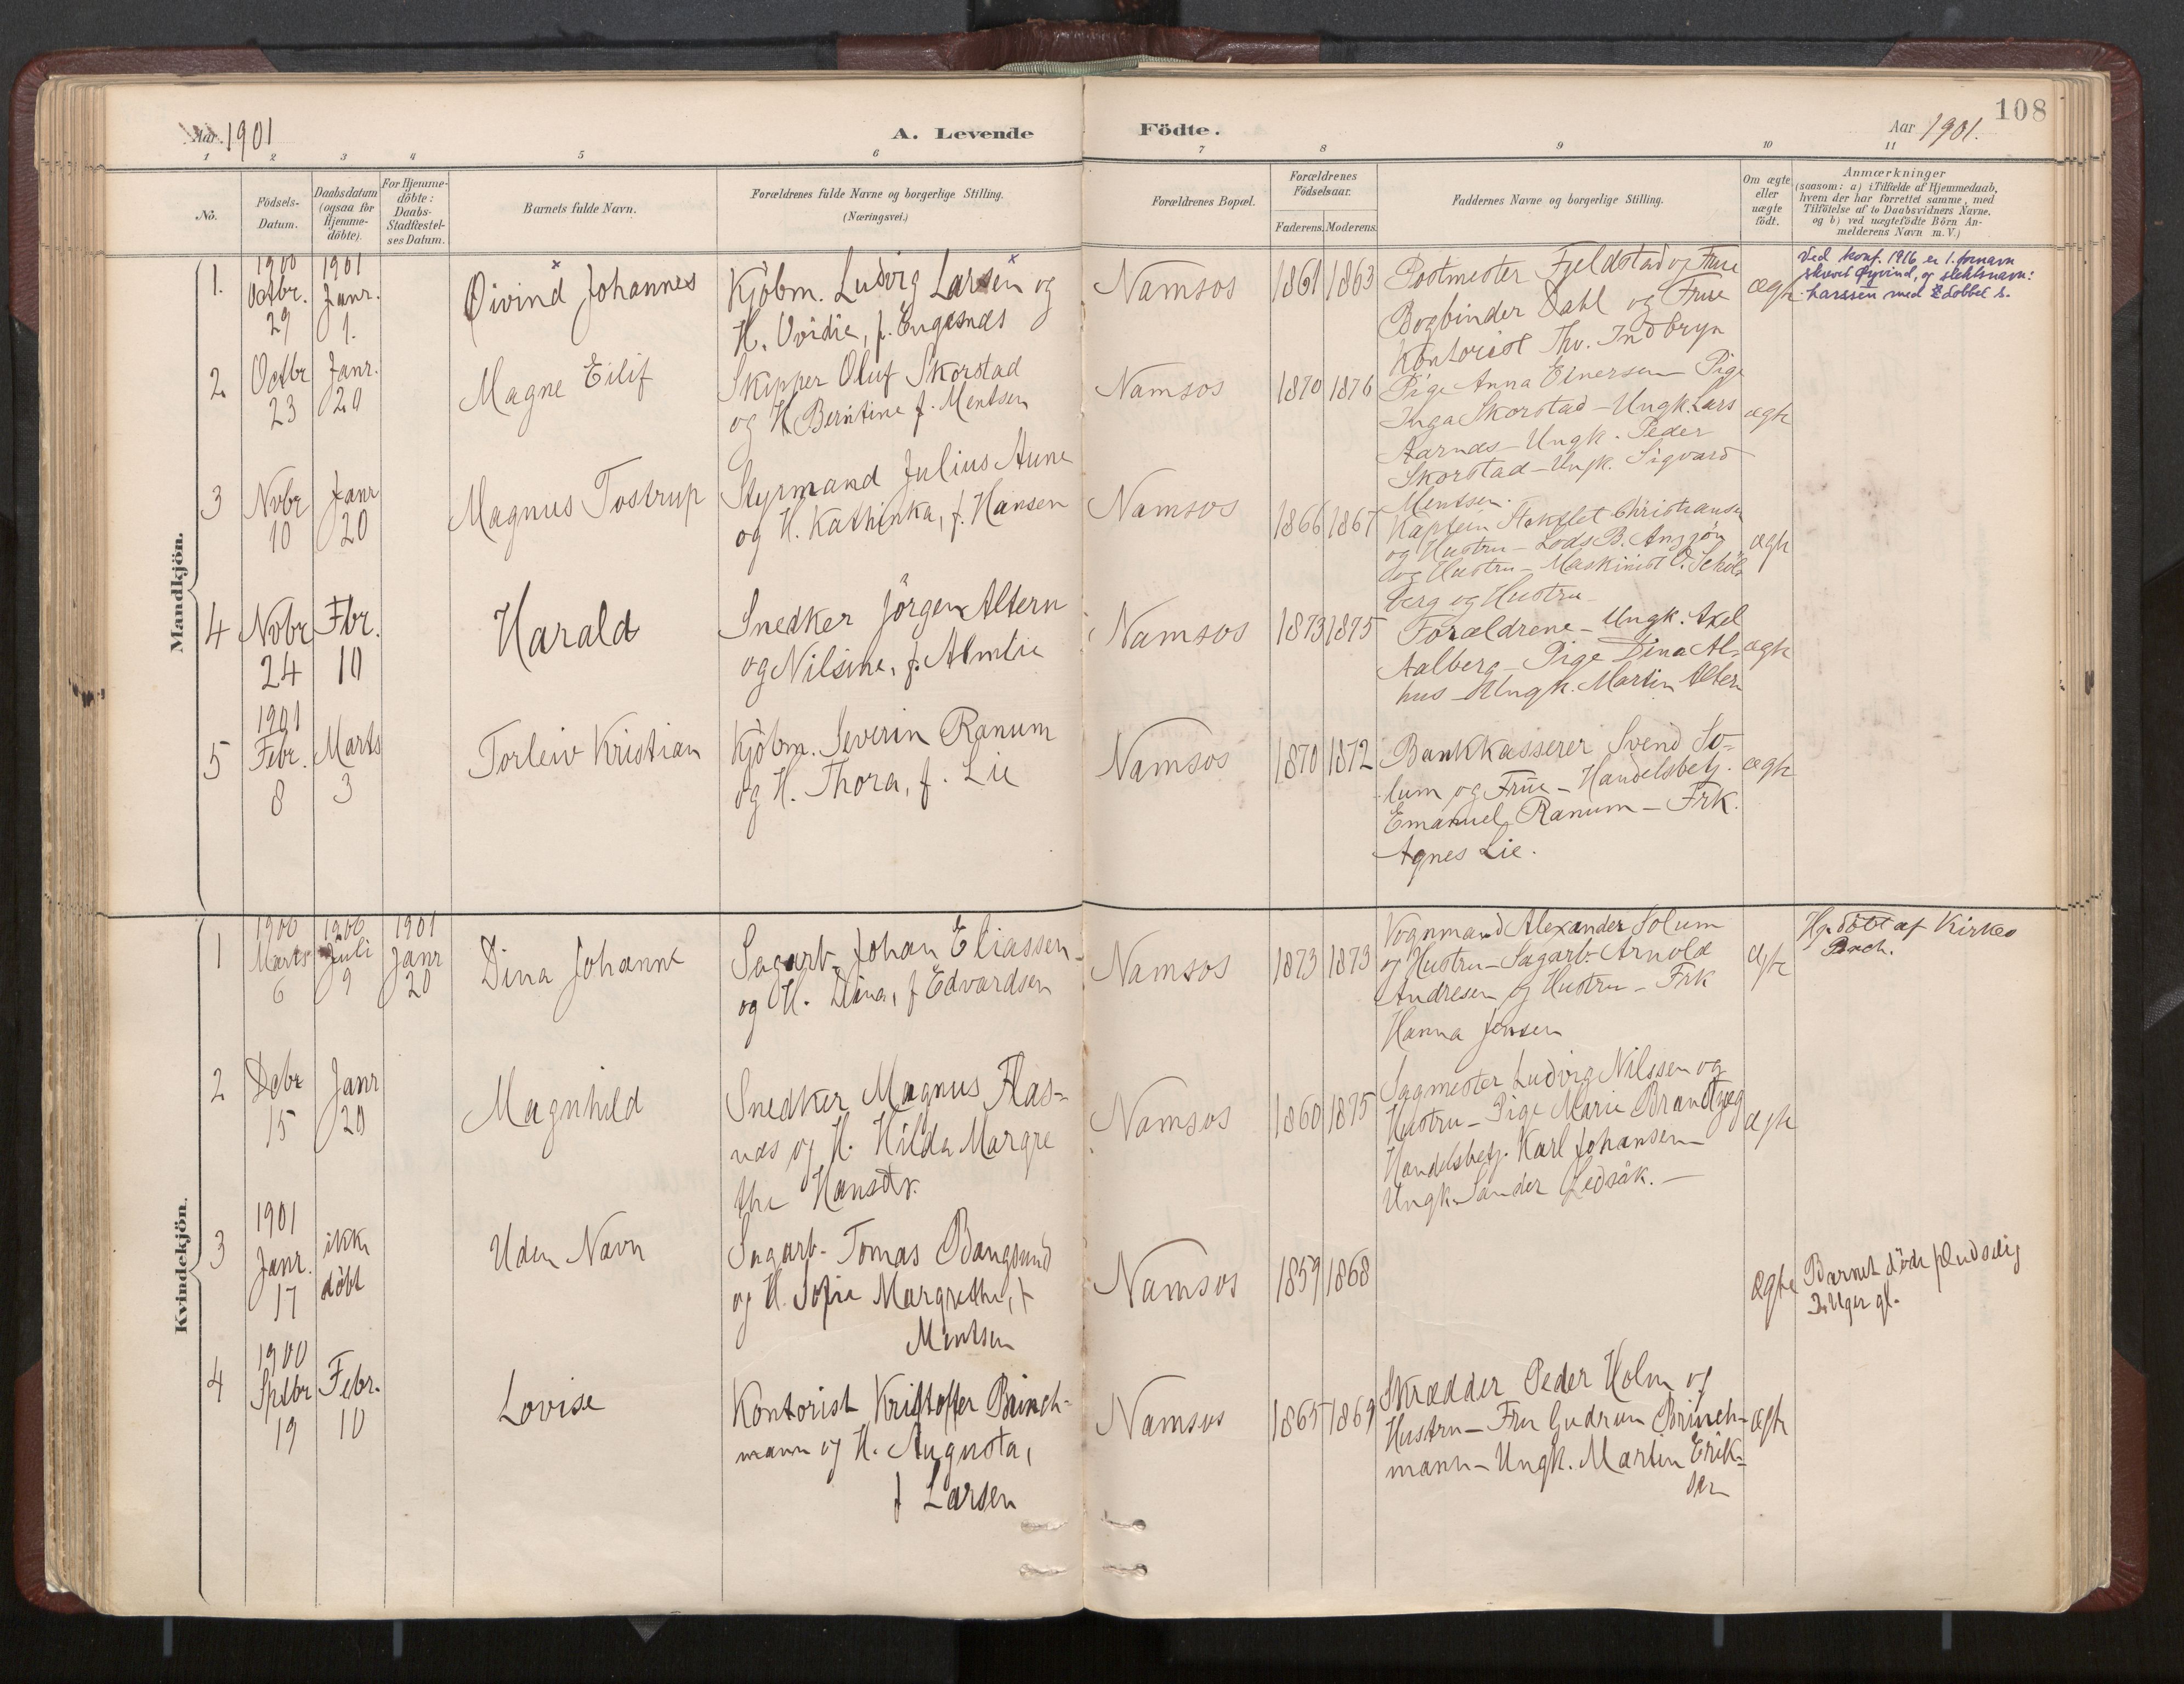 108
Aar 1901
A. Levende
Födte.
Aar 1901.
1 2 3 4 5 6 7 8 9 10 11
No.
Födsels-
Datum.
Daabsdatum
(ogsaa for
Hjemme-
döbte).
For Hjemme-
döbte:
Daabs-
Stadfæstel-
ses Datum.
Barnets fulde Navn.
Forældrenes fulde Navne og borgerlige Stilling.
(Næringsvei.)
Forældrenes Bopæl.
Forældrenes
Födselsaar.
Faderens. Moderens.
Faddernes Navne og borgerlige Stilling.
Om ægte
eller
uægte
födt.
Anmærkninger
(saasom: a) i Tilfælde af Hjemmedaab,
hvem der har forrettet samme, med
Tilföielse af to Daabsvidners Navne,
og b) ved uægtefödte Börn An-
melderens Navn m. V.)
Mandkjön.
1.
1900
Octbr.
29
1901
Janr.
1.
Öivind Johannes
Kjöbm. Ludvig Larsen og
H. Ovidie, f. Engesnæs
Namsos
1861
1863
Postmester Fjeldstad og Frue
Bogbinder Dahl og Frue
Kontorist Thv. Indbryn
ægte
Ved konf. 1916 er 1. fornavn
skrevet Øyvind, og slektsnavn:
Larssen med dobbel s.
2
Octbr
23
Janr.
20
Magne Eilif
Skipper Oluf Skorstad
og H. Berntine f. Mentsen
Namsos
1870
1876
Pige Anna Einersen Pige
Inga Skorstad - Ungk. Lars
Aarnæs - Ungk. Peder
Skorstad - Ungk. Sigvard
Mentsen.
ægte
3
Novbr
10
Janr
20
Magnus Tostrup
Styrmand Julius Aune
og H. Kathinka, f. Hansen
Namsos
1866
1867
Kaptein Stokflet Christiansen
og Hustru - Lods B. Angjön
og Hustru - Maskinist O. Schöls
berg og Hustru
ægte
4
Novbr
24
Fbr.
10
Harald
Snedker Jörgen Altern
og Nilsine, f. Almlie
Namsos
1873
1875
Forældrene - Ungk. Axel
Aalberg - Pige Dina Al-
hus - Ungk. Martin Altern
ægte
5
1901
Febr.
8
Marts
3
Torleiv Kristian
Kjöbm. Severin Ranum
og H. Thora, f. Lie
Namsos
1870
1872
Bankkasserer Svend So-
lum og Frue - Handelsbetj.
Emanuel Ranum - Frk.
Agnes Lie.
ægte
Kvindekjön.
1
1900
Marts
6
1900
Juli
9
1901
Janr
20
Dina Johanne
Sagarb. Johan Eliassen
og H. Dina, f Edvardsen
Namsos
1873
1873
Vognmand Alexander Solum
og Hustru - Sagarb. Arnold
Andresen og Hustru - Frk
Hanna Jensen
ægte
Hj. döbt af Kirkes
Bach.
2
Debr
15
Janr
20
Magnhild
Snedker Magnus Flas-
næs og H. Hilda Margre
the Hansdtr.
Namsos
1860
1875
Sagmester Ludvig Nilssen og
Hustru - Pige Marie Brandtzæg
Handelsbetj. Karl Johansen
Ungk. Sander Ledsåk. -
ægte
3
1901
Janr.
17
ikke
döbt
Uden Navn
Sagarb. Tomas Bangsund
og H. Sofie Margrethe, f
Mentsen
Namsos
1859
1868
ægte
Barnet döde pludselig
2 Uger gl.
4
1900
Septbr
19
Febr.
10
Lovise
Kontorist Kristoffer Brinch-
mann og H. Augusta,
f Larsen
Namsos
1865
1869
Skrædder Peder Holm og
Hustru - Fru Gudrun Brinch-
mann - Ungk. Martin Erik-
sen
ægte